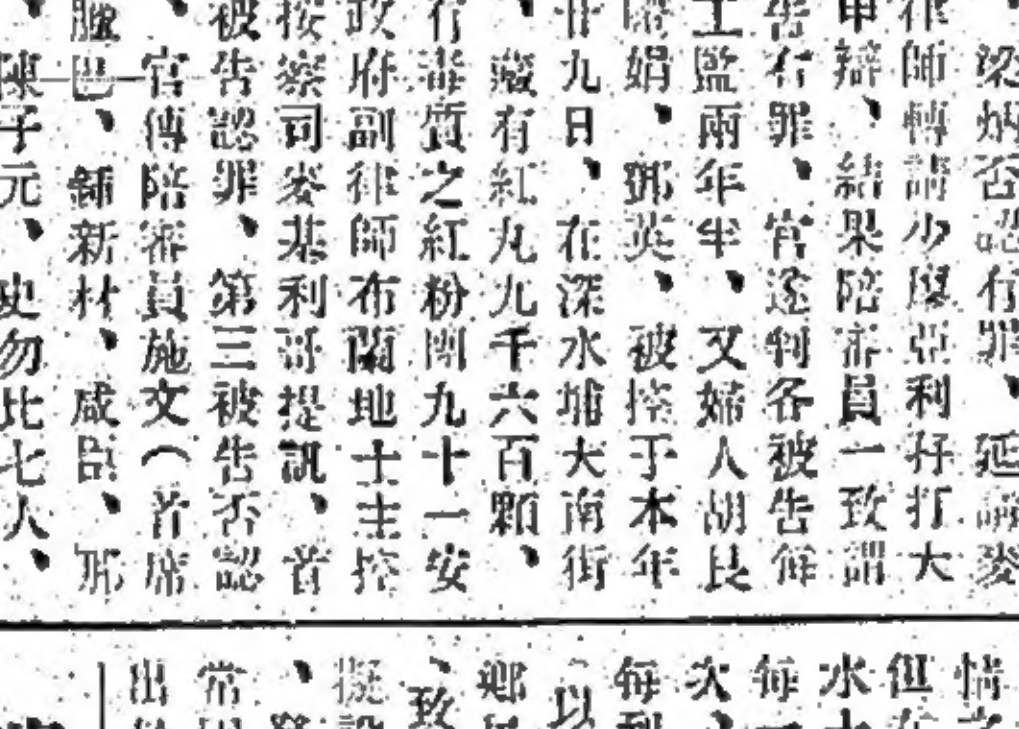 、梁炳否認有罪、延請麥
律師轉請少厘亞利孖打大
申辯、結果陪審員一致謂
告有罪、官遂判各被告每
工監兩年半、又婦人胡良
娟、鄧英、被控于本年
廿九日、在深水埔大南街
、藏有紅丸九千六百顆、
有毒質之紅粉團九十一安
政府副律師布蘭地士主控
按察司麥基利哥提訊、首
被告認罪、第三被告否認
、官傳陪審員施文(首席
、師新材、咸
、陳子元、史勿比七人、
情
但
水
每
次
每
以
鄉
、致
擬設
、
常
出